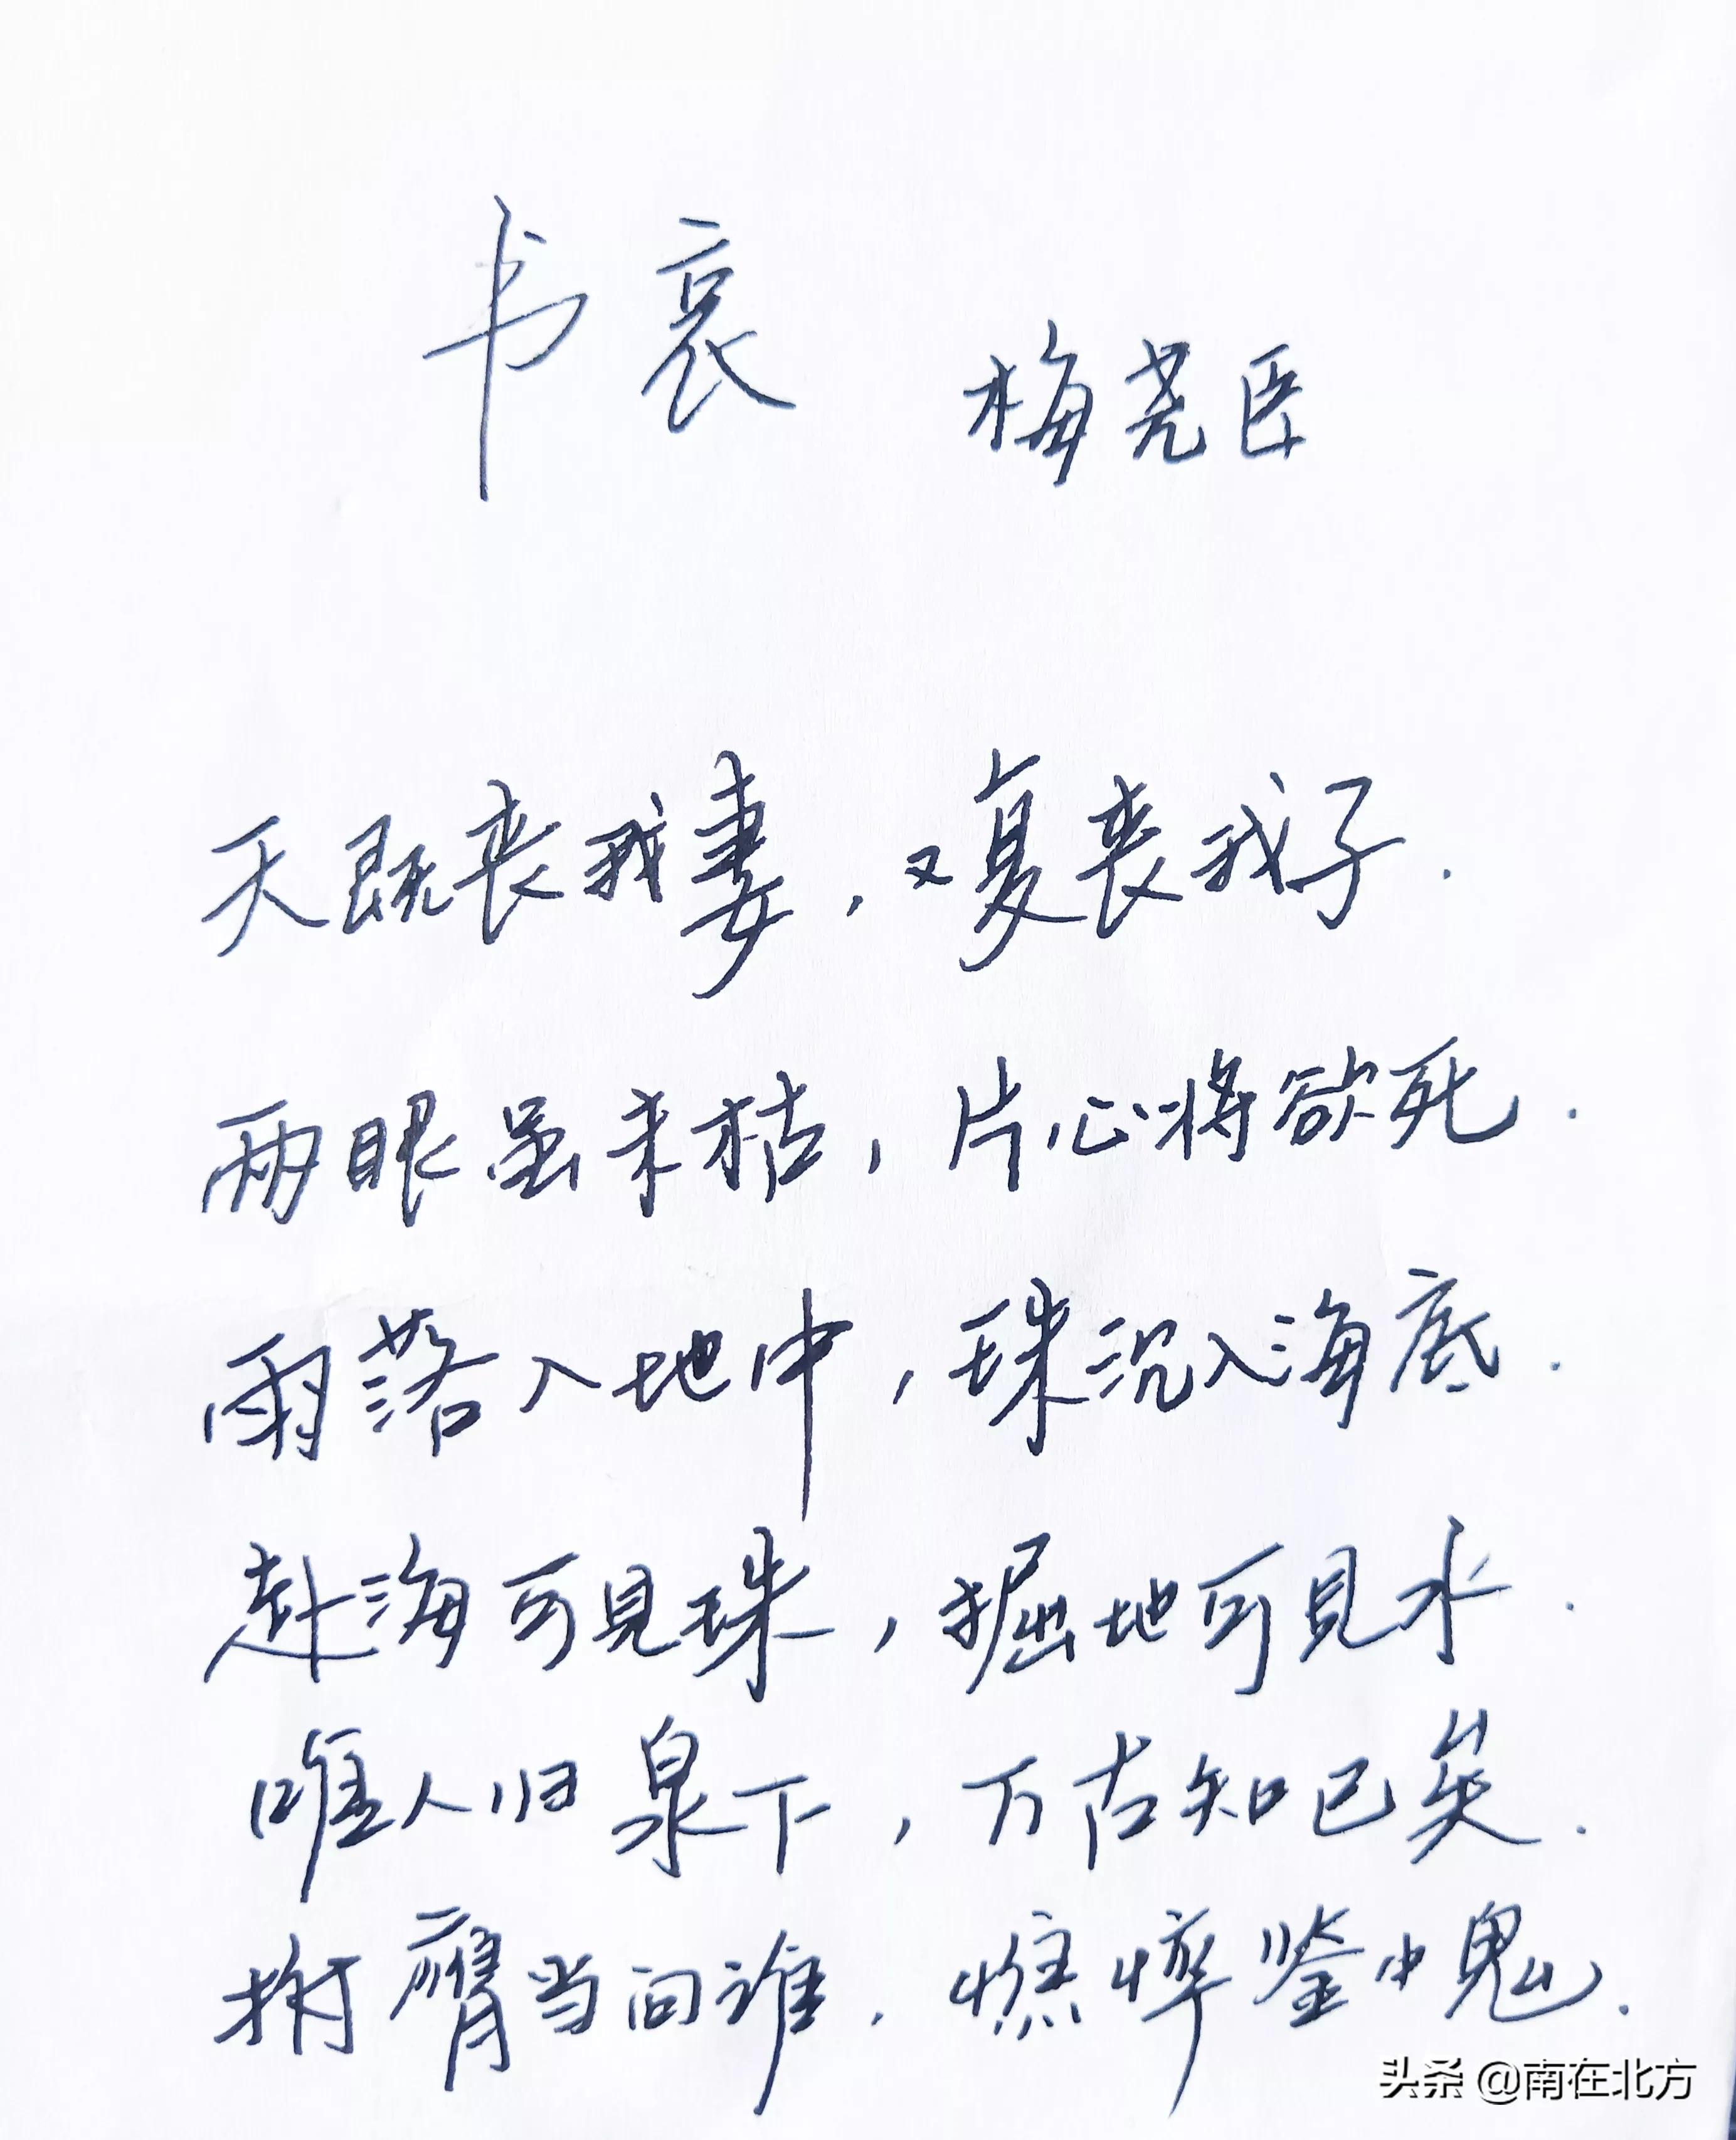 书哀
梅尧臣
天既丧我妻，又复丧我子．
两眼虽未枯，片心将欲死．
雨落入地中，珠沉入海底．
赴海可見珠，掘地可見水．
唯人归泉下，万古知已矣．
拊膺当问谁．憔悴鉴中鬼．
头条 @南在北方